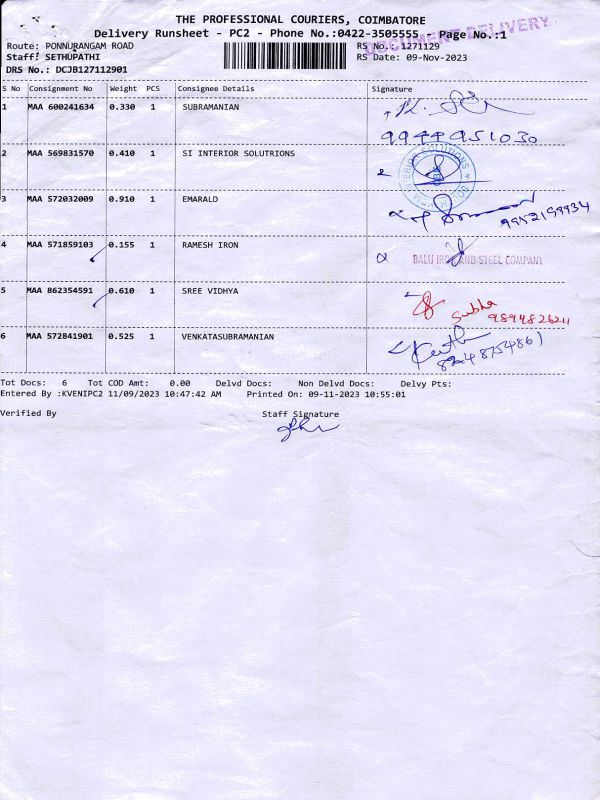 THE PROFESSIONAL COURIERS, COIMBATORE
Delivery Runsheet - PC2 - Phone No.:0422-3505555 - Page No.:1
DOCUMENT DELIVERY
Route: PONNURANGAM ROAD RS No.: 1271129
Staff: SETHUPATHI RS Date: 09-Nov-2023
DRS No.: DCJB127112901
S No Consignment No Weight PCS Consignee Details Signature
1 MAA 600241634 0.330 1 SUBRAMANIAN
9944951030
2 MAA 569831570 0.410 1 SI INTERIOR SOLUTRIONS
INTERIOR SOLUTIONS
3 MAA 572032009 0.910 1 EMARALD
9952199934
4 MAA 571859103 0.155 1 RAMESH IRON
BALU IRON AND STEEL COMPANY
5 MAA 862354591 0.610 1 SREE VIDHYA
Subha
6 MAA 572841901 0.525 1 VENKATASUBRAMANIAN
Tot Docs: 6 Tot COD Amt: 0.00 Delvd Docs: Non Delvd Docs: Delvy Pts:
Entered By :KVENIPC2 11/09/2023 10:47:42 AM Printed On: 09-11-2023 10:55:01
Verified By Staff Signature